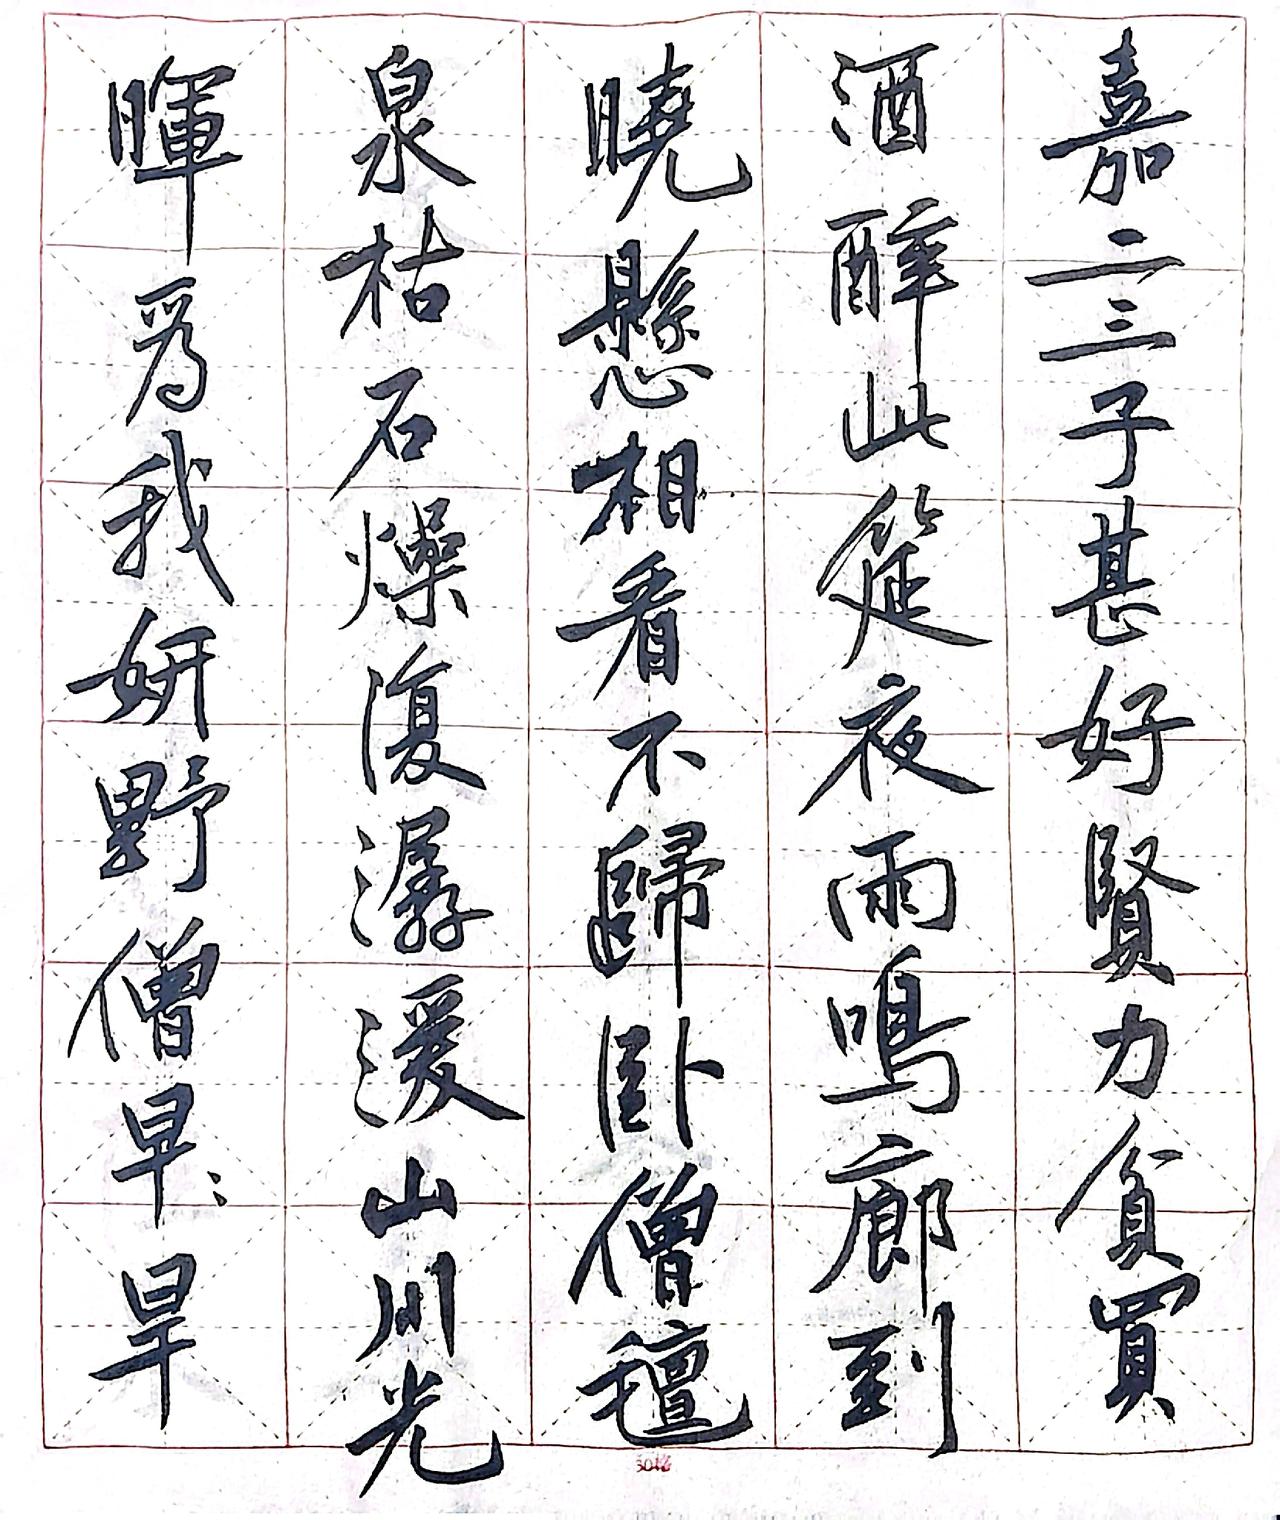 嘉二三子甚好賢力貧買
酒醉此筵夜雨鳴廊到
曉懸相看不歸臥僧氊
泉枯石燥復潺湲山川光
暉爲我妍野僧早﹔旱